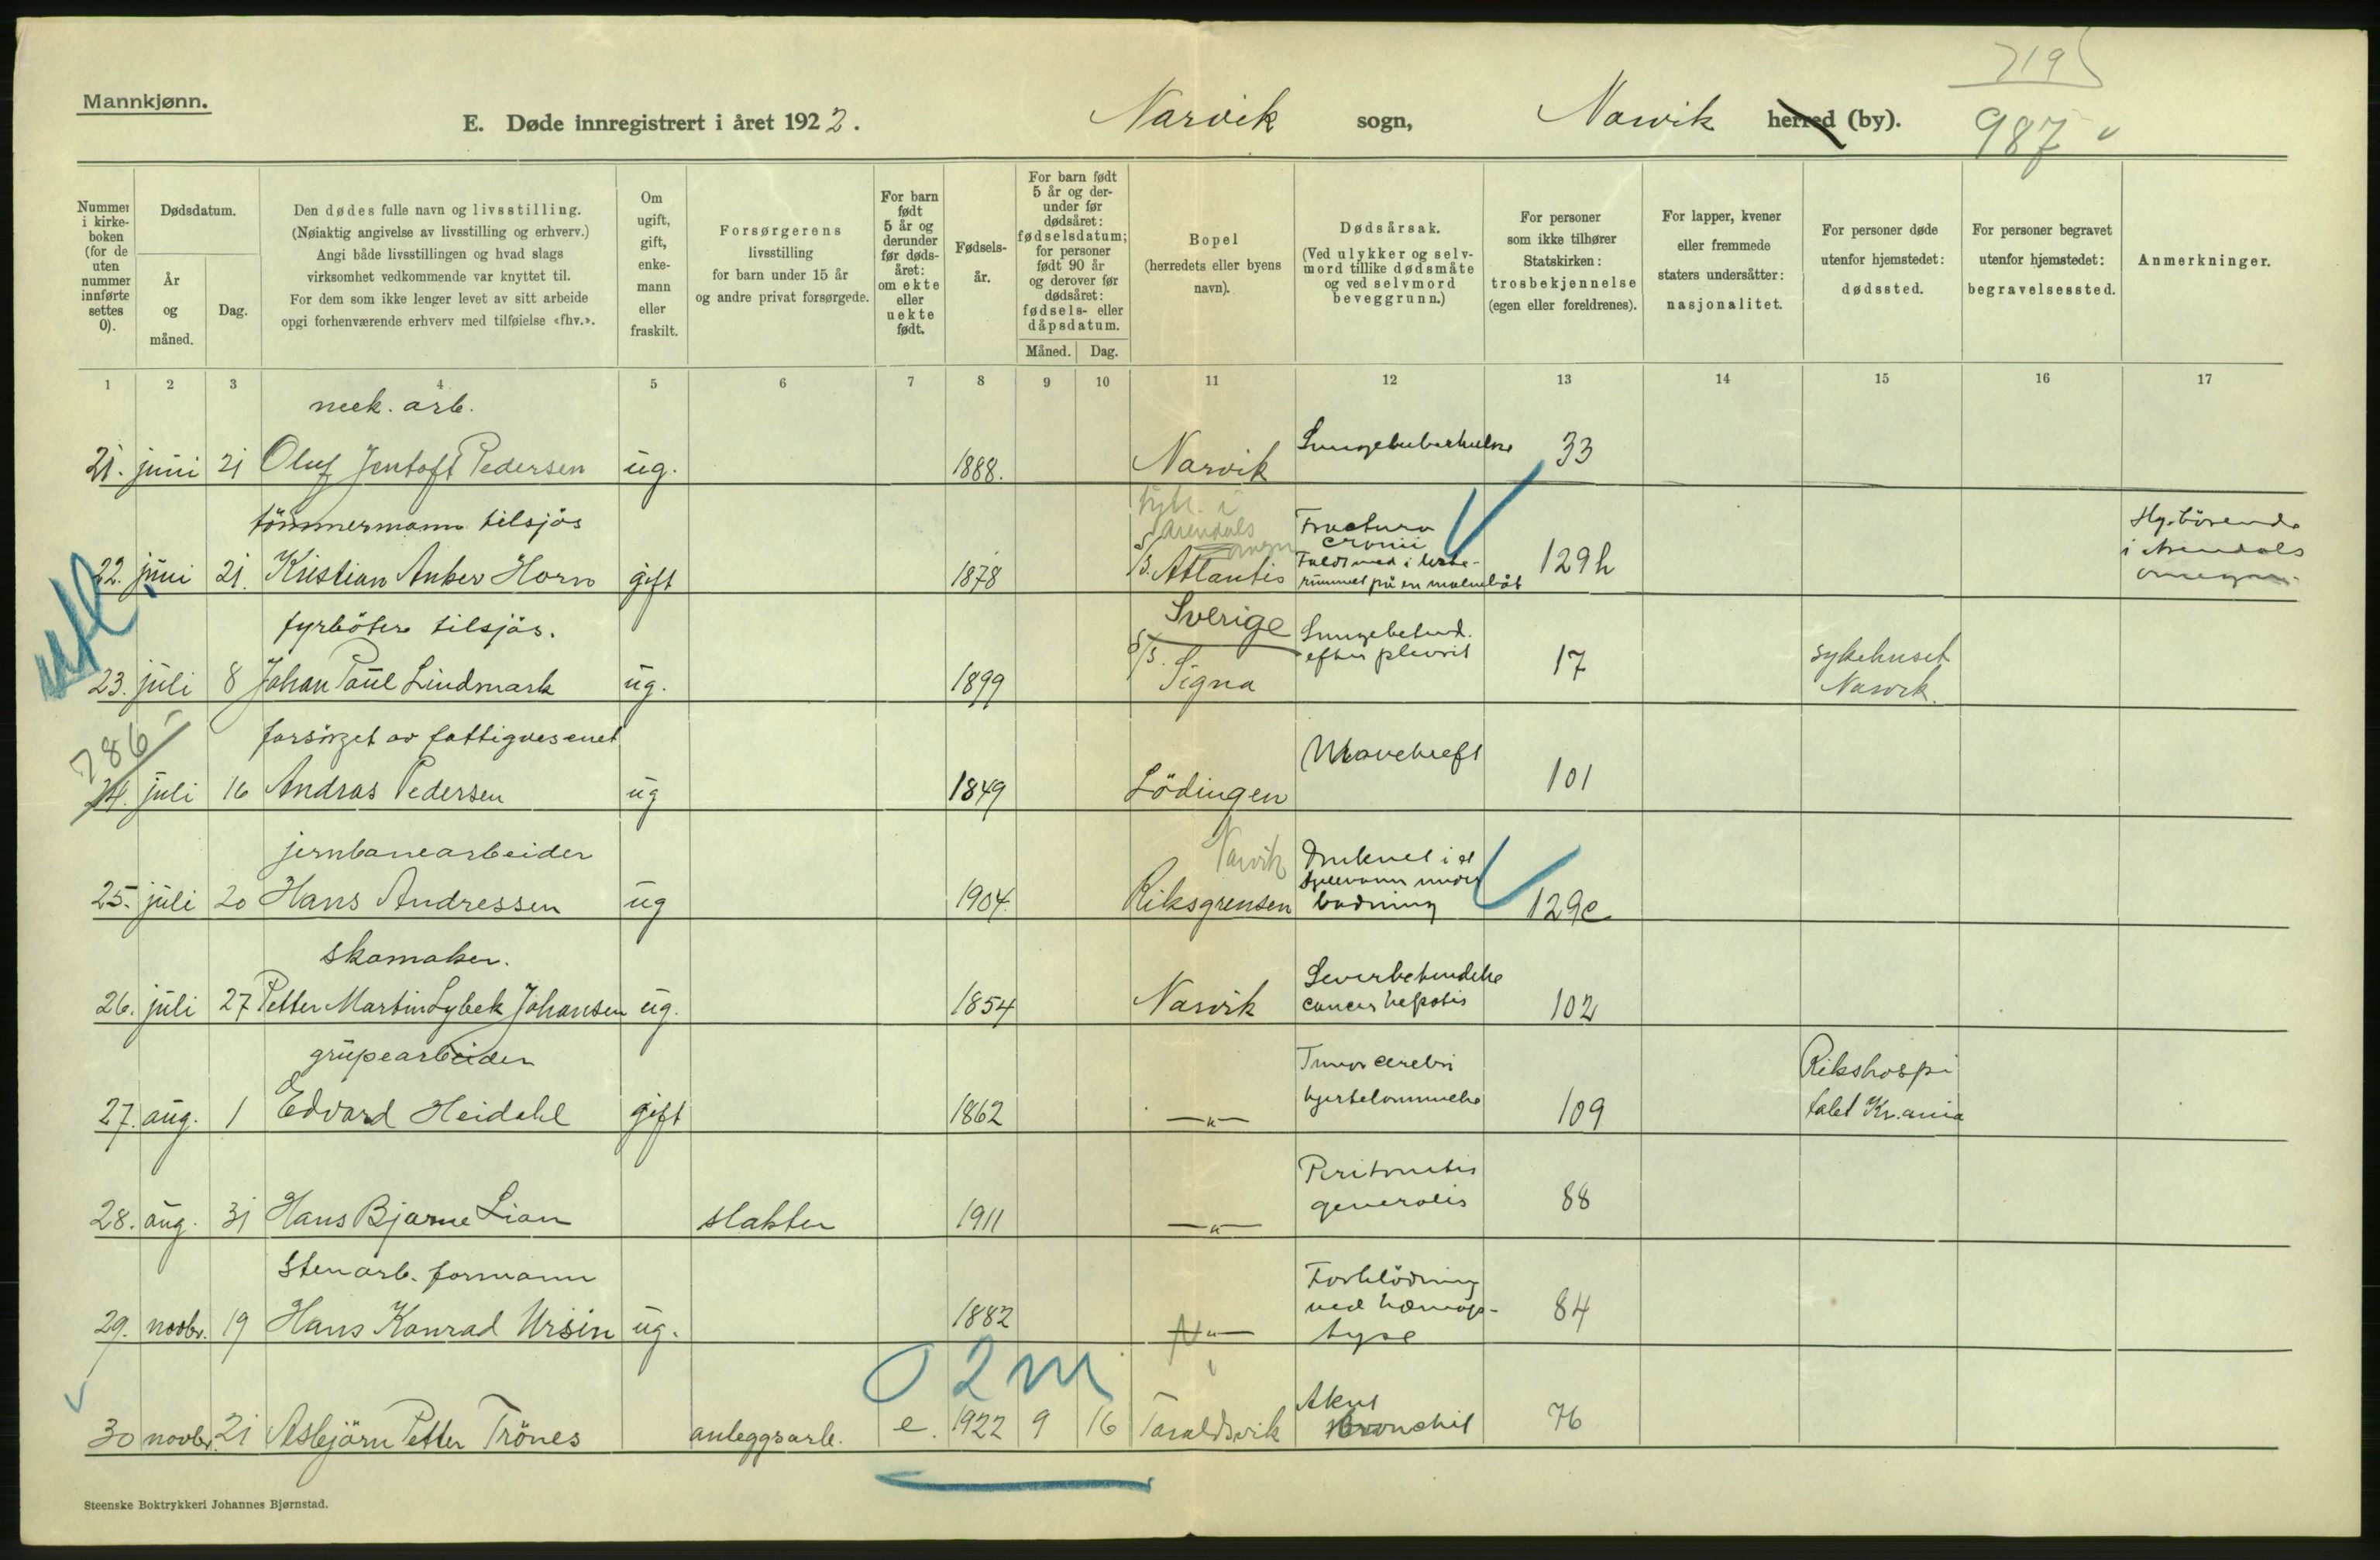 7195
Mannkjønn.
E. Døde innregistrert i året 1922. Narvik sogn, Narvik herred (by). 987
Nummer i kirkeboken (for de uten nummer innførte settes 0).
Dødsdatum.
År og måned.
Dag.
Den dødes fulle navn og livsstilling.
(Nøiaktig angivelse av livsstilling og erhverv.)
Angi både livsstillingen og hvad slags
virksomhet vedkommende var knyttet til.
For dem som ikke lenger levet av sitt arbeide
opgi forhenværende erhverv med tilføielse «fhv.».
Om ugift, gift, enkemann eller fraskilt.
Forsørgerens
livsstilling
for barn under 15 år
og andre privat forsørgede.
For barn født 5 år og derunder før dødsåret: om ekte eller uekte født.
Fødselsår.
For barn født 5 år og derunder før dødsåret: fødselsdatum; for personer født 90 år og derover før dødsåret: fødsels- eller dåpsdatum.
Måned. Dag.
Bopel
(herredets eller byens
navn).
Dødsårsak.
(Ved ulykker og selvmord tillike dødsmåte og ved selvmord beveggrunn.)
For personer
som ikke tilhører
Statskirken:
trosbekjennelse
(egen eller foreldrenes).
For lapper, kvener
eller fremmede
staters undersåtter:
nasjonalitet.
For personer døde
utenfor hjemstedet:
dødssted.
For personer begravet
utenfor hjemstedet:
begravelsessted.
Anmerkninger.
1 2 3 4 5 6 7 8 9 10 11 12 13 14 15 16 17
mek. arb.
21. juni 21 Oluf Jentoft Pedersen ug. 1888. Narvik Lungetuberkulose 33
tömmermann tilsjøs
22. juni 21. Kristian Anker Horn gift 1878 hjh. i Arendals omegn S/S. Atlantis Fractura cranii Faldt ned i lasterummet på en malmbåt 129h Hj.hörende i Arendals omegn
utl.
fyrböter tilsjøs.
23. juli 8 Johan Paul Lindmark ug. 1899 Sverige S/S. Signa Lungebetend. efter plevrit 17 sykehuset Narvik.
786
forsörget av fattigvesenet
24. juli 16 Andras Pedersen ug 1849 Lödingen Mavekreft 101
jernbanearbeider
25. juli 20 Hans Andressen ug 1904. Narvik Riksgrensen Druknet i et under badning 129e
skomaker.
26. juli 27 Petter Martin Lybek Johansen ug. 1854 Narvik Leverbetendelse cancer hepatis 102
grupearbeider
27. aug. 1 Edvard Heidahl gift 1862 —"— Tumor cerebri hjertelammelse 109 Rikshospitalet Kr.ania
28. aug. 31 Hans Bjarne Lian slakter 1911 —"— Peritonitis generalis 88
Stenarb. formann
29. novbr. 19 Hans Konrad Ursin ug. 1882 —"— N Forblödning ved hæmoptyse 84
0 2 m
30 novbr. 21 Asbjörn Petter Trönes anleggsarb. e. 1922 9 16 Taraldsvik Akut Bronchit 76
Steenske Boktrykkeri Johannes Bjørnstad.